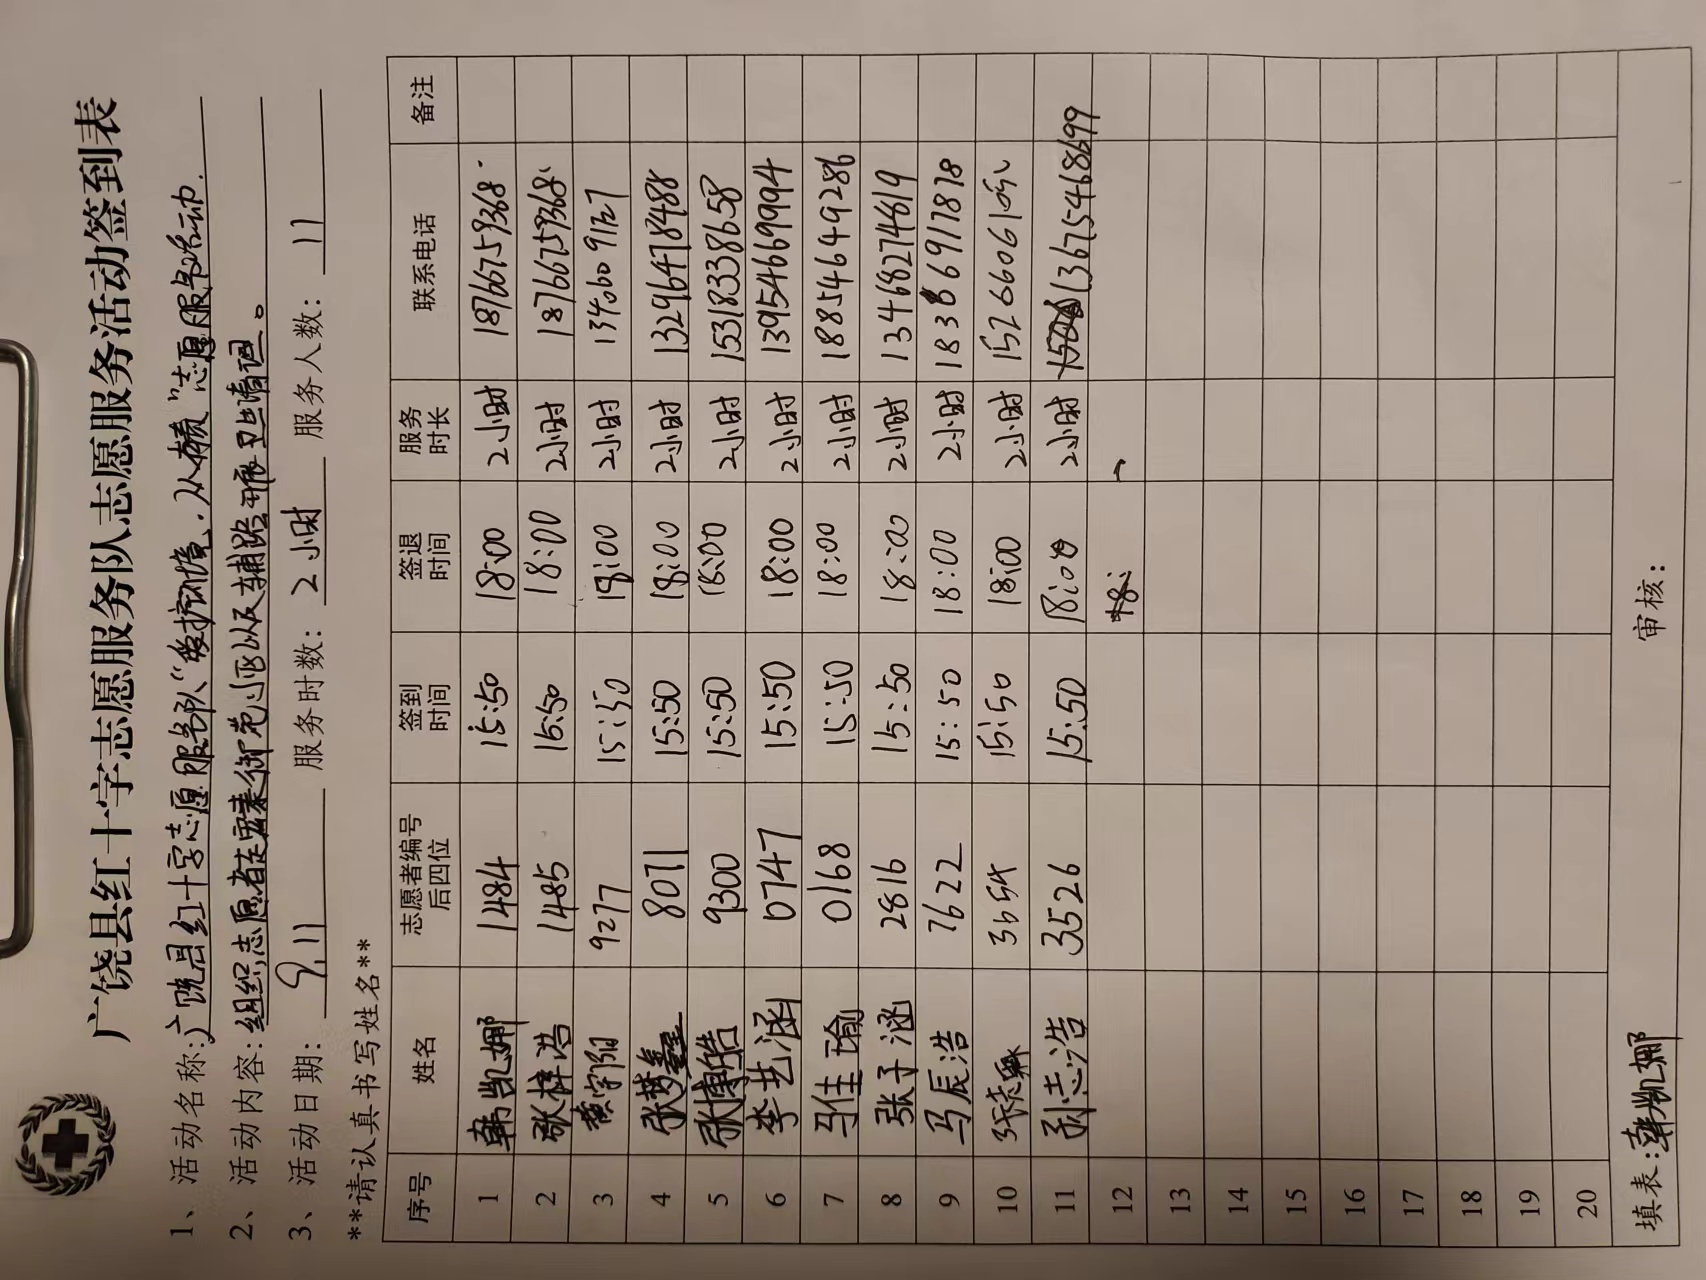 广饶县红十字志愿服务队志愿服务活动签到表
1、活动名称:广饶县红十字志愿服务队“爱护环境.从我做”志愿服务活动.
2、活动内容:组织志愿者在乐安御苑小区以及辅路开展卫生清理。
3、活动日期: 9.11 服务时数: 2小时 服务人数: 11
**请认真书写姓名**
序号 姓名 志愿者编号后四位 签到时间 签退时间 服务时长 联系电话 备注
1 韩凯娜 1484 15:50 18:00 2小时 18766759368
2 张梓浩 1485 15:50 18:00 2小时 18766759368
3 黄宇阳 9277 15:50 18:00 2小时 13460091127
4 张梦鑫 8071 15:50 18:00 2小时 13296478488
5 张博皓 9300 15:50 18:00 2小时 15318338658
6 李艺涵 0747 15:50 18:00 2小时 13954669994
7 马佳瑜 0168 15:50 18:00 2小时 18854649286
8 张子涵 2816 15:50 18:00 2小时 13468274819
9 马辰浩 7622 15:50 18:00 2小时 18386917878
10 3654 15:50 18:00 2小时
11 孙志浩 3526 15:50 18:00 2小时 13675468699
12 18:
13
14
15
16
17
18
19
20
填表:韩凯娜 审核: